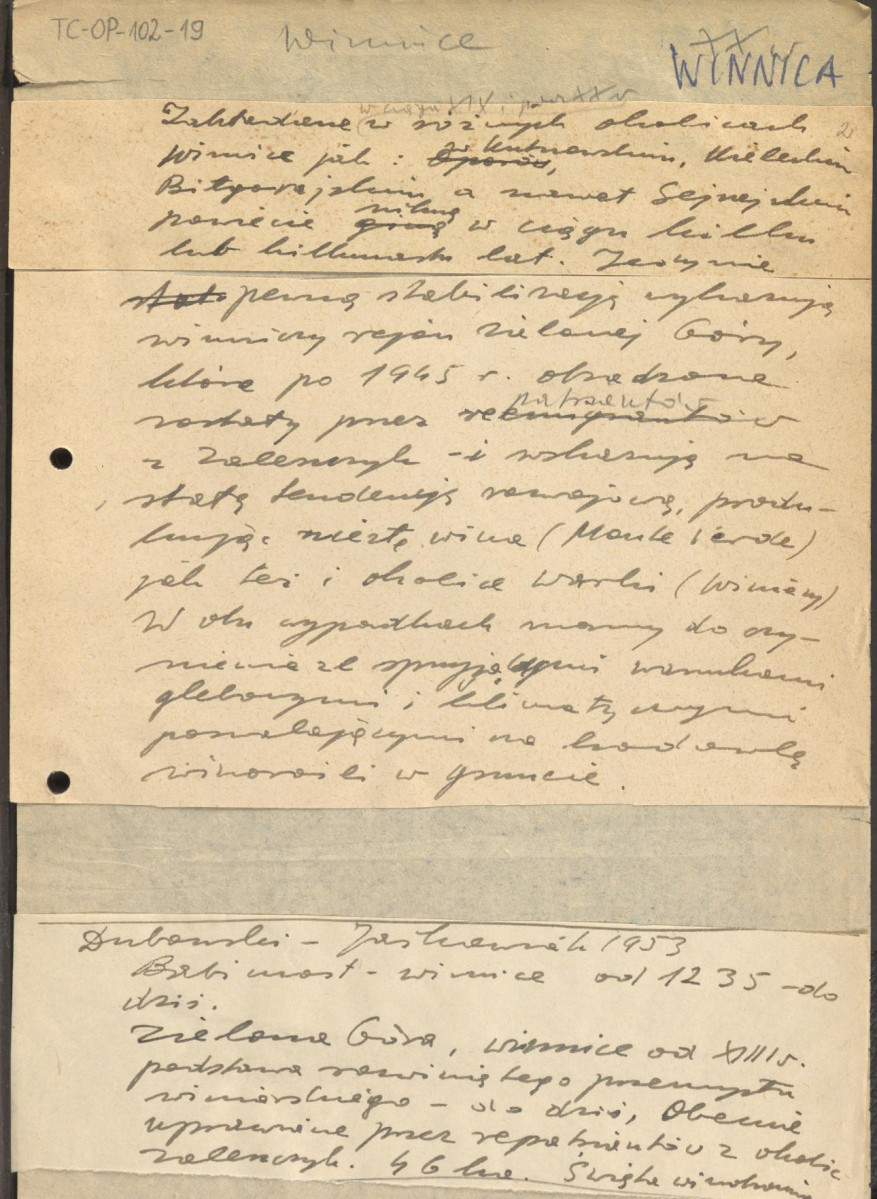 TC-OP-102-19
winnice
WINNICA
XX
w ciągu XIX i pocz XX w
Zakładane w różnych okolicach
2
winnice jak : Oporów, w Kutnowskim, Kieleckim
Biłgorajskim a nawet Sejneńskim
powiecie giną nikną w ciągu kilku
lub kilkunastu lat. Jedynie
stał pewną stabilizację wykazują
winniczy rejon Zielonej Góry,
które po 1945 r. obsadzone
zostały przez reemigrantów patriantów
z Zaleszczyk - i wskazują na
stałą tendencję rozwojową, produ-
kując niezłe wina (Monte Verde)
jak też i okolice Warki (Winiary)
W obu wypadkach mamy do czy-
nienia ze sprzyjającymi warunkami
glebowymi i klimatycznymi
pozwalającymi na hodowlę
winorośli w gruncie.
Dubowski - Jaśkowiak 1953
Babimost - winnice od 1235 - do
dziś.
Zielona Góra, winnice od XIII w.
podstawa rozwiniętego przemysłu
winiarskiego - do dziś, Obecnie
uprawiane przez repatriantów z okolic
Zaleszczyk. 46 ha. Święta winobrania